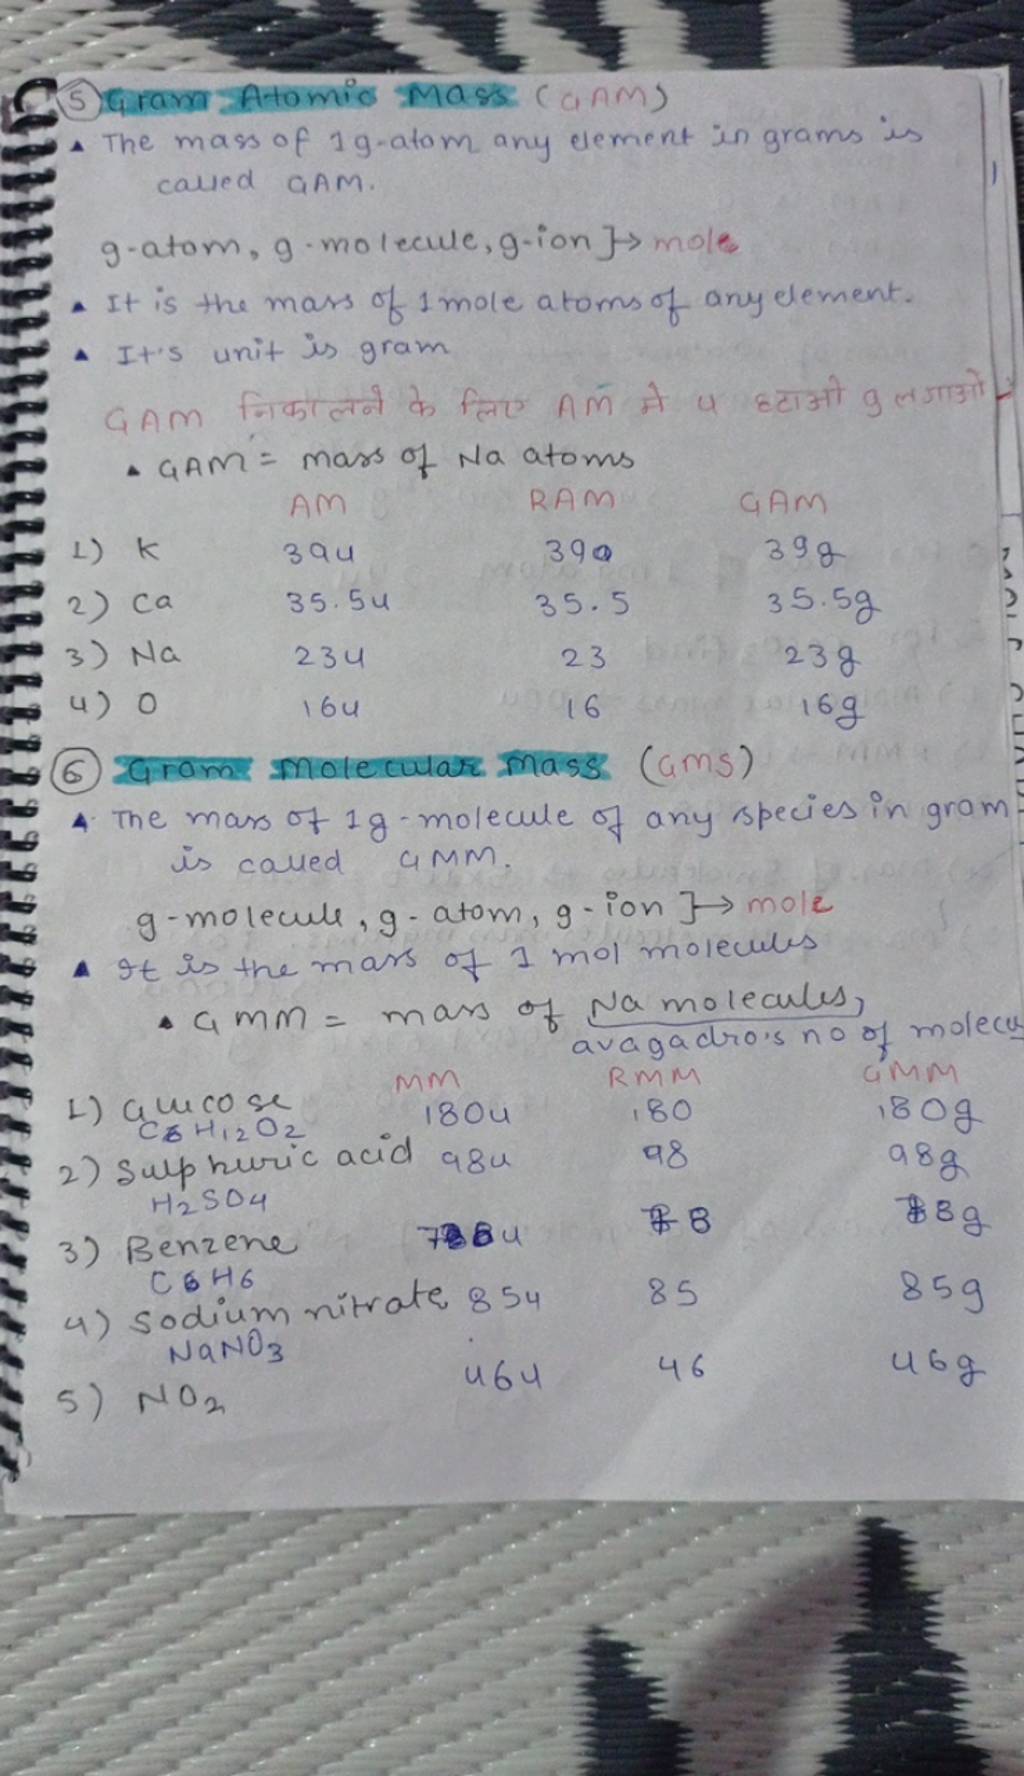 5 Gram Atomic Mass (GAM)
▲ The mass of 1g-atom any element in grams is
called GAM.
g-atom, g-molecule, g-ion }→ mole
▲ It is the mass of 1 mole atoms of any element.
▲ It's unit is gram
GAM निकालने के लिए AM मे u हटाओ g लगाओ
▲ GAM = mass of Na atoms
AM RAM GAM
1) K 39u 39 39g
2) Ca 35.5u 35.5 35.5g
3) Na 23u 23 23g
4) O 16u 16 16g
6 Gram Molecular Mass (GMS)
▲ The mass of 1g-molecule of any species in gram
is called GMM.
g-molecule, g-atom, g-ion }→ mole
▲ It is the mass of 1 mol molecules
▲ GMM = mass of Na molecules,
avagadro's no of molecu
MM RMM GMM
1) Glucose 180u 180 180g
C6H12O2
2) Sulphuric acid 98u 98 98g
H2SO4
3) Benzene 78u 78 78g
C6H6
4) Sodium nitrate 85u 85 85g
NaNO3
5) NO2 46u 46 46g